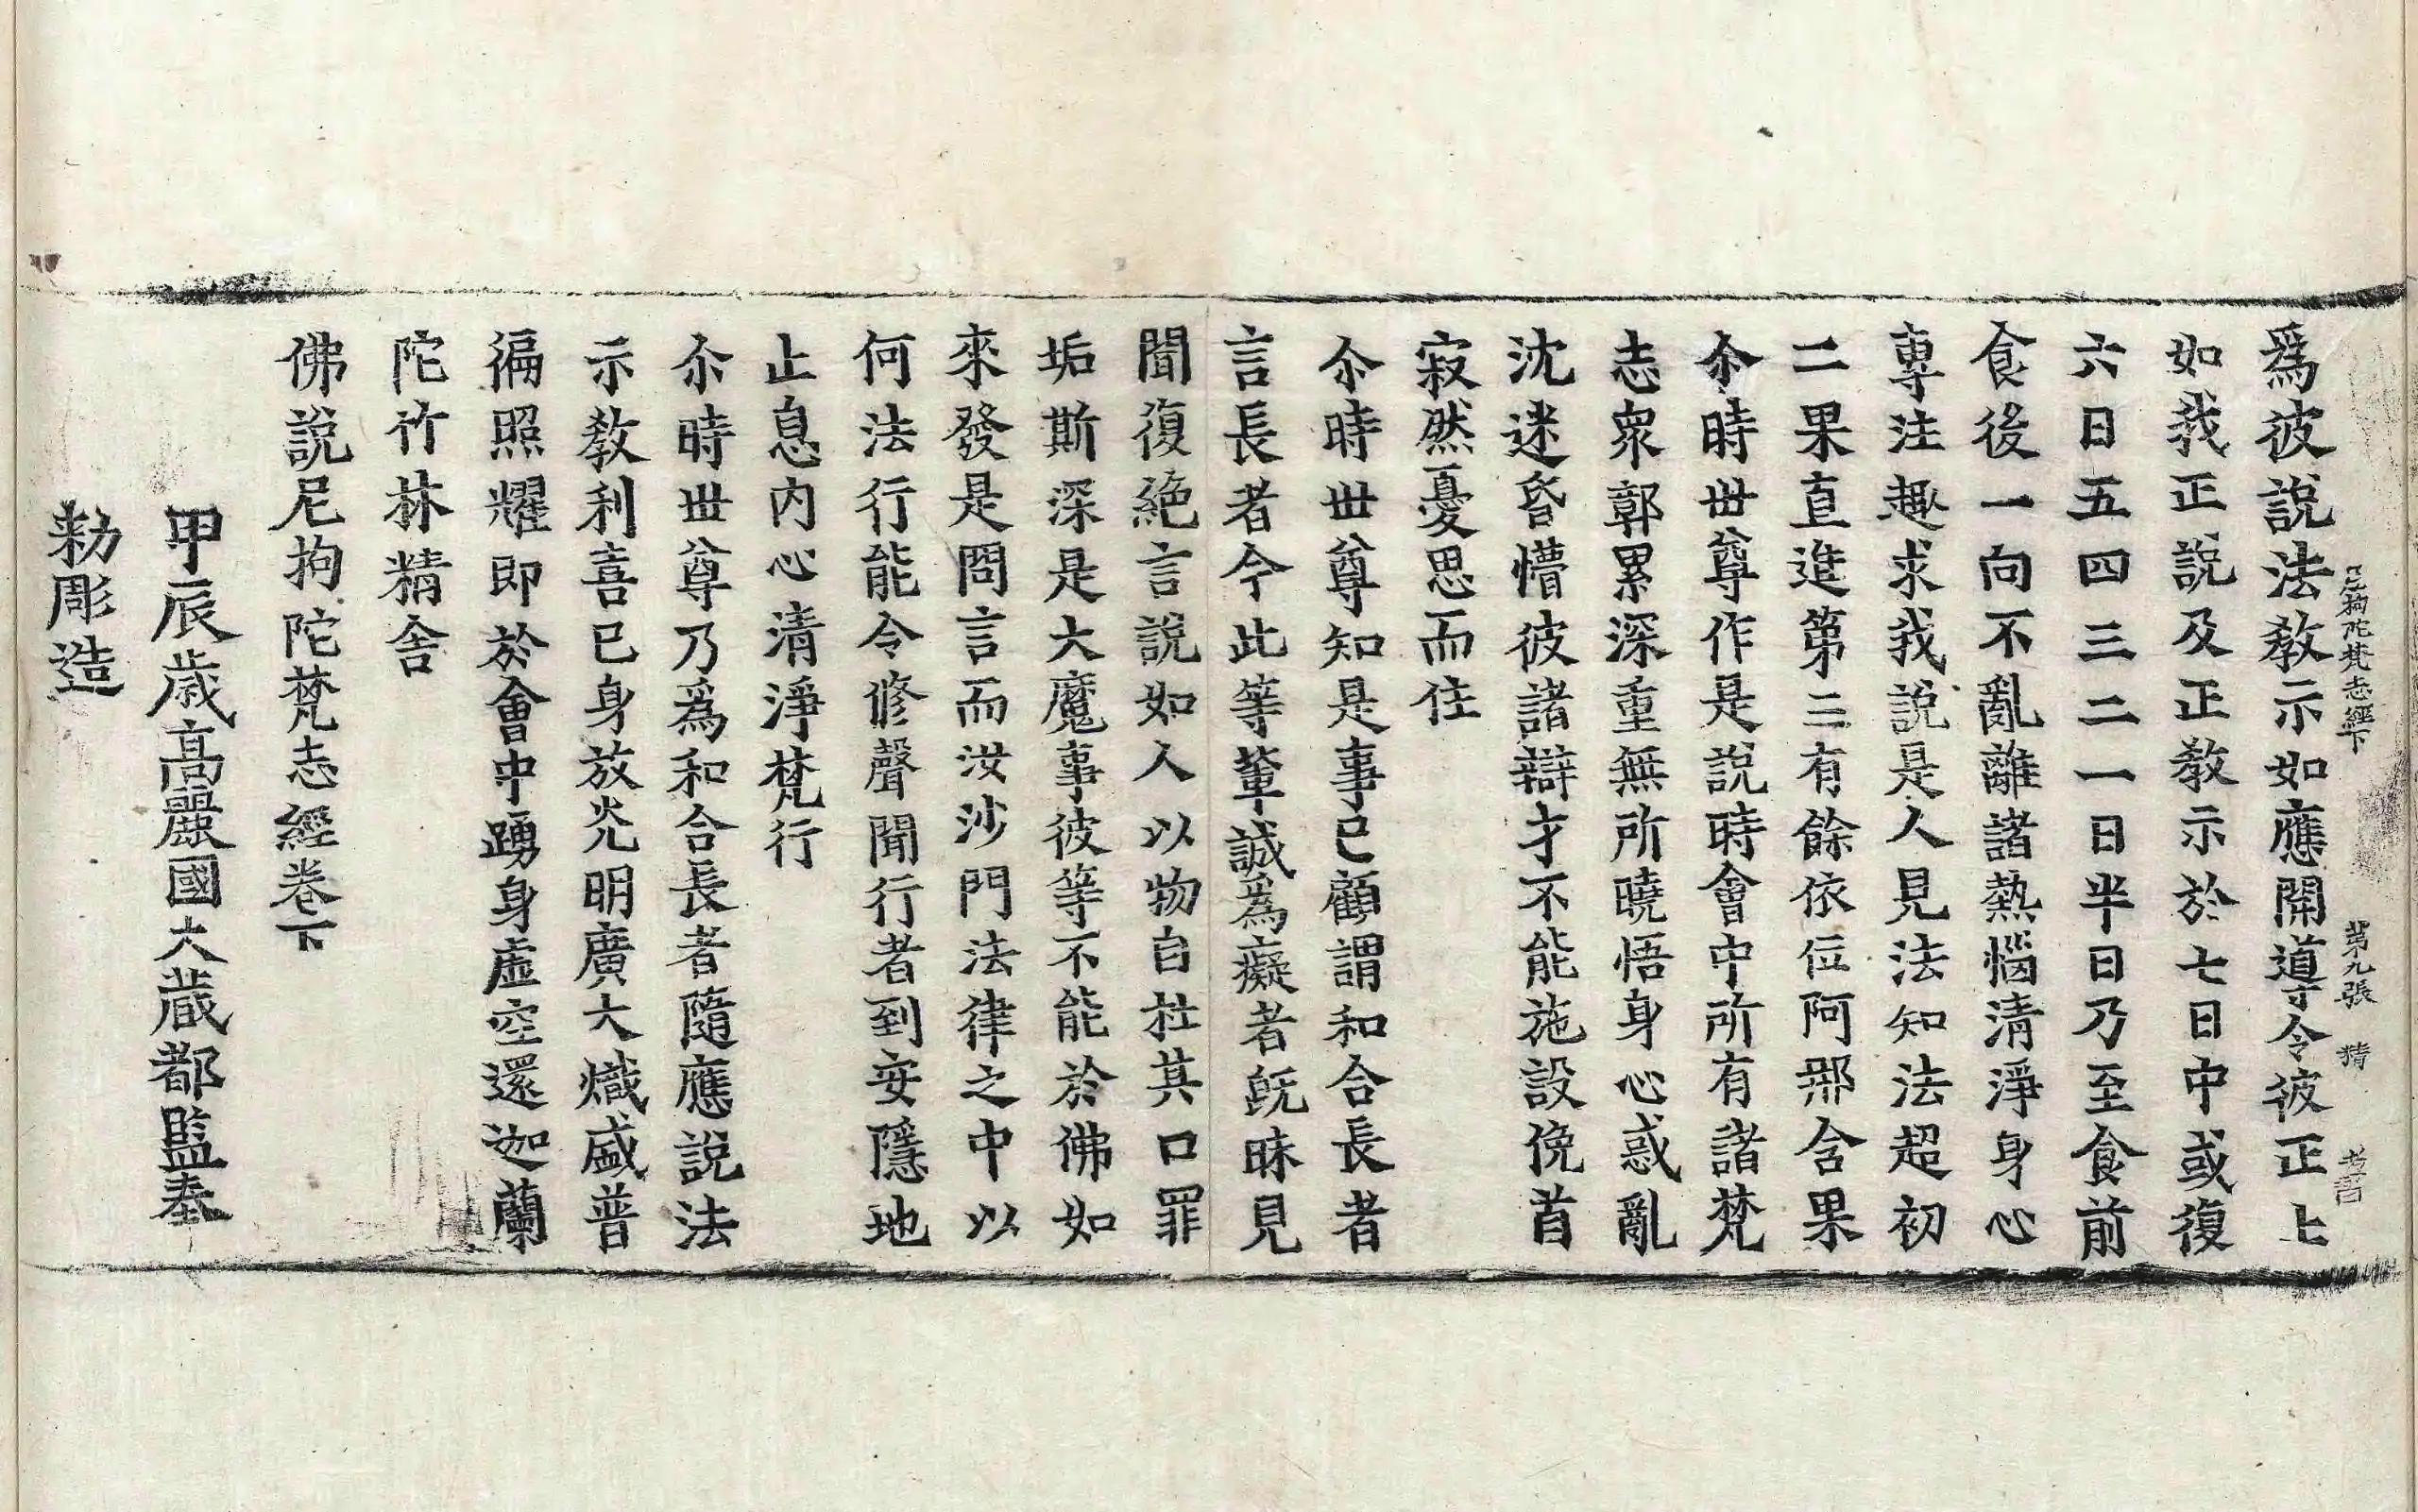 尼拘陀梵志經下 第九張 精
爲彼說法教示如應開導令彼正士
如我正說及正教示於七日中或復
六日五四三二一日半日乃至食前
食後一向不亂離諸熱惱清淨身心
專注趣求我說是人見法知法超初
二果直進第三有餘依位阿那含果
尒時世尊作是說時會中所有諸梵
志衆郭累深重無所曉悟身心惑亂
沈迷昏懵彼諸辯才不能施設俛首
寂然憂思而住
尒時世尊知是事已顧謂和合長者
言長者今此等輩誠爲癡者旣昧見
聞復絕言說如人以物自杜其口罪
垢斯深是大魔事彼等不能於佛如
來發是問言而汝沙門法律之中以
何法行能令修聲聞行者到安隱地
止息內心清淨梵行
尒時世尊乃爲和合長者隨應說法
示教利喜已身放光明廣大熾盛普
徧照耀即於會中踊身虛空還迦蘭
陀竹林精舍
佛說尼拘陀梵志經卷下
甲辰歲高麗國大藏都監奉
勅彫造